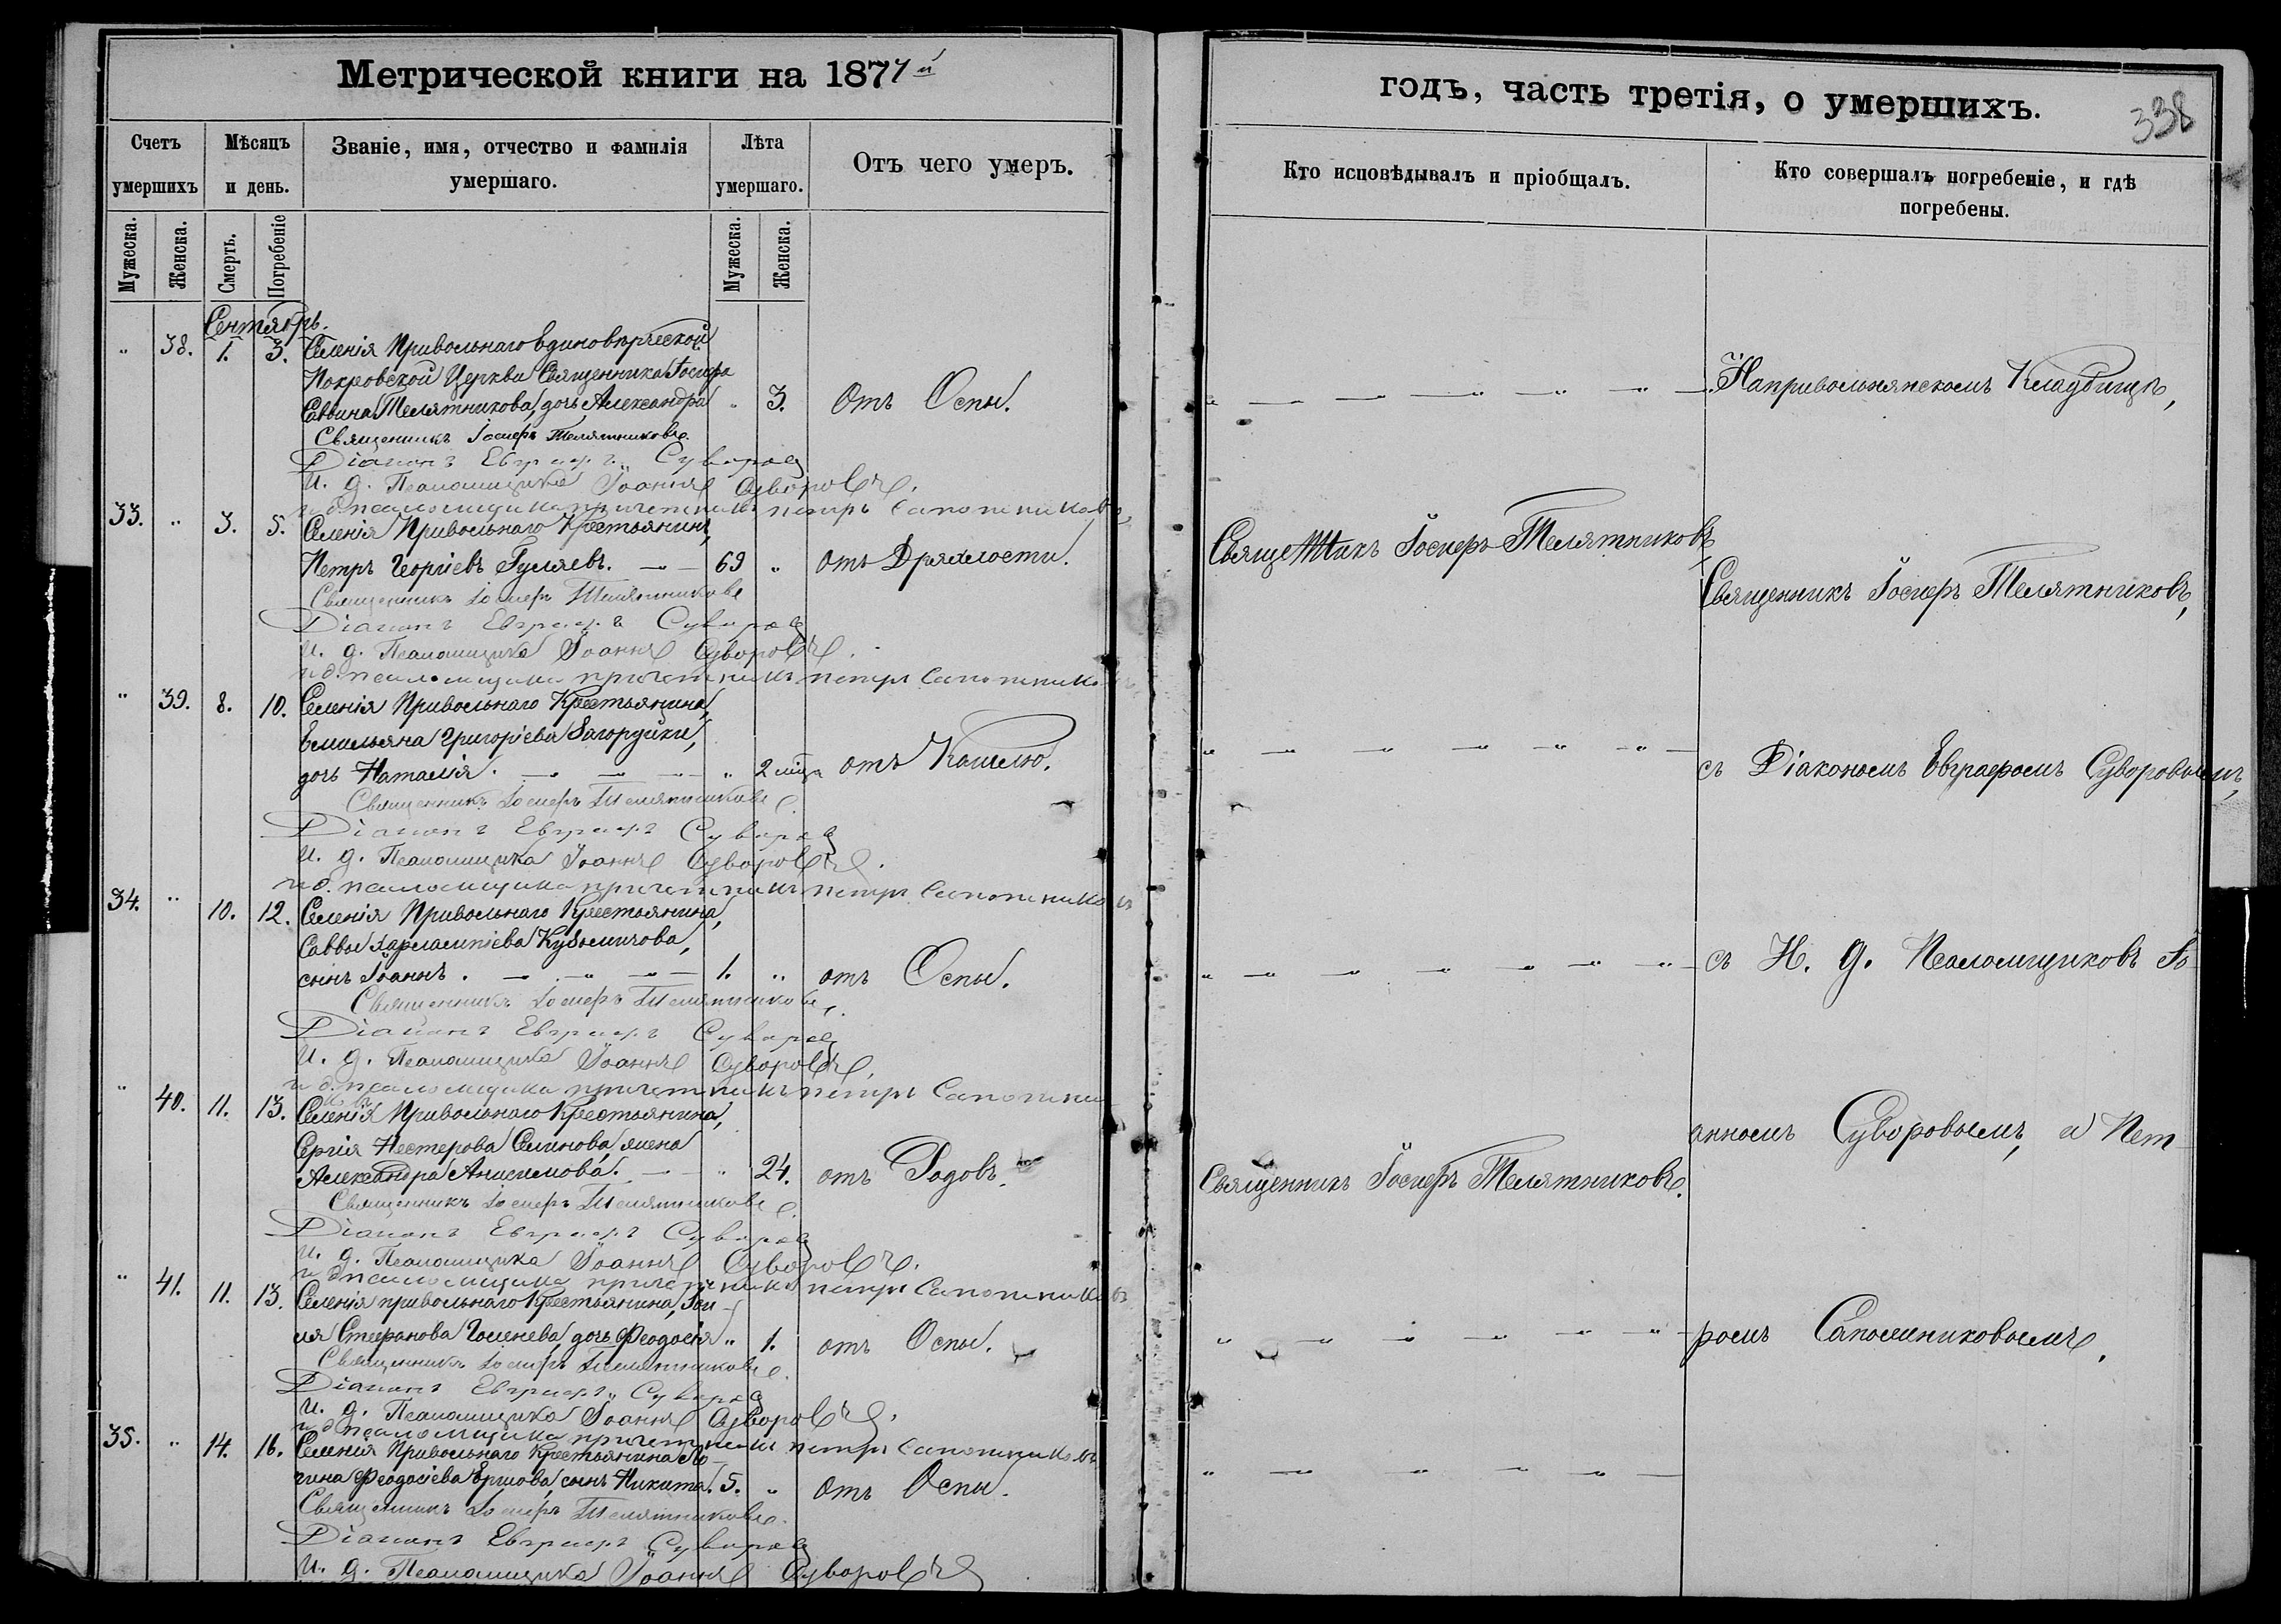 Метрической книги на 1877й
Счетъ умершихъ
Мѣсяцъ и день.
Званіе, имя, отчество и фамилія умершаго.
Лѣта умершаго.
Отъ чего умеръ.
Мужеска.
Женска.
Смерть.
Погребеніе
Мужеска.
Женска.
Сентябрь.
" 38. 1. 3. Селенія Привольнаго Единовѣрческой
Покровской Церкви Священника Іосифа
Саввина Телятникова, дочь Александра " 3. Отъ Оспы.
Священникъ Іосифъ Телятниковъ.
Діаконъ Евграфъ Суворов
И. д. Псаломщика Іоаннъ Суворовъ.
и д. псаломщика причетникъ петръ Сапожниковъ
33. " 3. 5. Селенія Привольнаго Крестьянинъ,
Петръ Георгіевъ Гуляевъ. 69 " отъ Дряхлости.
Священникъ Іосифъ Телятниковъ
Діаконъ Евграфъ Суворов
И. д. Псаломщика Іоаннъ Суворовъ.
и д. псаломщика причетникъ петръ Сапожников
" 39. 8. 10. Селенія Привольнаго Крестьянина,
Емильяна Григорьева Загордики,
дочь Наталія. " 2 мѣца отъ Кашлю.
Священникъ Іосифъ Телятниковъ.
Діаконъ Евграфъ Суворов
И. д. Псаломщика Іоаннъ Суворовъ.
и д. псаломщика причетникъ петръ Сапожников
34. " 10. 12. Селенія Привольнаго Крестьянина,
Саввы Харлампіева Кузьмичова,
сынъ Іоаннъ. 1. " отъ Оспы.
Священникъ Іосифъ Телятниковъ.
Діаконъ Евграфъ Суворов
И. д. Псаломщика Іоаннъ Суворовъ.
и д. псаломщика причетникъ петръ Сапожни
ковъ
" 40. 11. 13. Селенія Привольнаго Крестьянина,
Сергія Нестерова Селинова, жена
Александра Анисимова. " 24. отъ Родовъ.
Священникъ Іосифъ Телятниковъ.
Діаконъ Евграфъ Суворов
И. д. Псаломщика Іоаннъ Суворовъ.
и д псаломщика причетникъ петръ Сапожниковъ
" 41. 11. 13. Селенія привольнаго Крестьянина,
ля Стефанова дочь Феодосія " 1. отъ Оспы.
Священникъ Іосифъ Телятниковъ.
Діаконъ Евграфъ Суворов
И. д. Псаломщика Іоаннъ Суворовъ.
и д псаломщика причетникъ петръ Сапожниковъ
35. " 14. 16. Селенія Привольнаго Крестьянина Ло-
гина Феодосіева Ершова, сынъ Никита. 5. " Отъ Оспы.
Священникъ Іосифъ Телятниковъ.
Діаконъ Евграфъ Суворов
И. д. Псаломщика Іоаннъ Суворовъ
годъ, часть третія, о умершихъ.
338
Кто исповѣдывалъ и пріобщалъ.
Кто совершалъ погребеніе, и гдѣ погребены.
На привольнянскомъ Кладбищѣ,
Священникъ Іосифъ Телятниковъ
Священникъ Іосифъ Телятниковъ,
съ Діакономъ Евграфомъ Суворовымъ,
съ И. д. Псаломщиковъ Іо-
анномъ Суворовымъ, и Пет-
Священникъ Іосифъ Телятниковъ.
ромъ Сапожниковымъ.